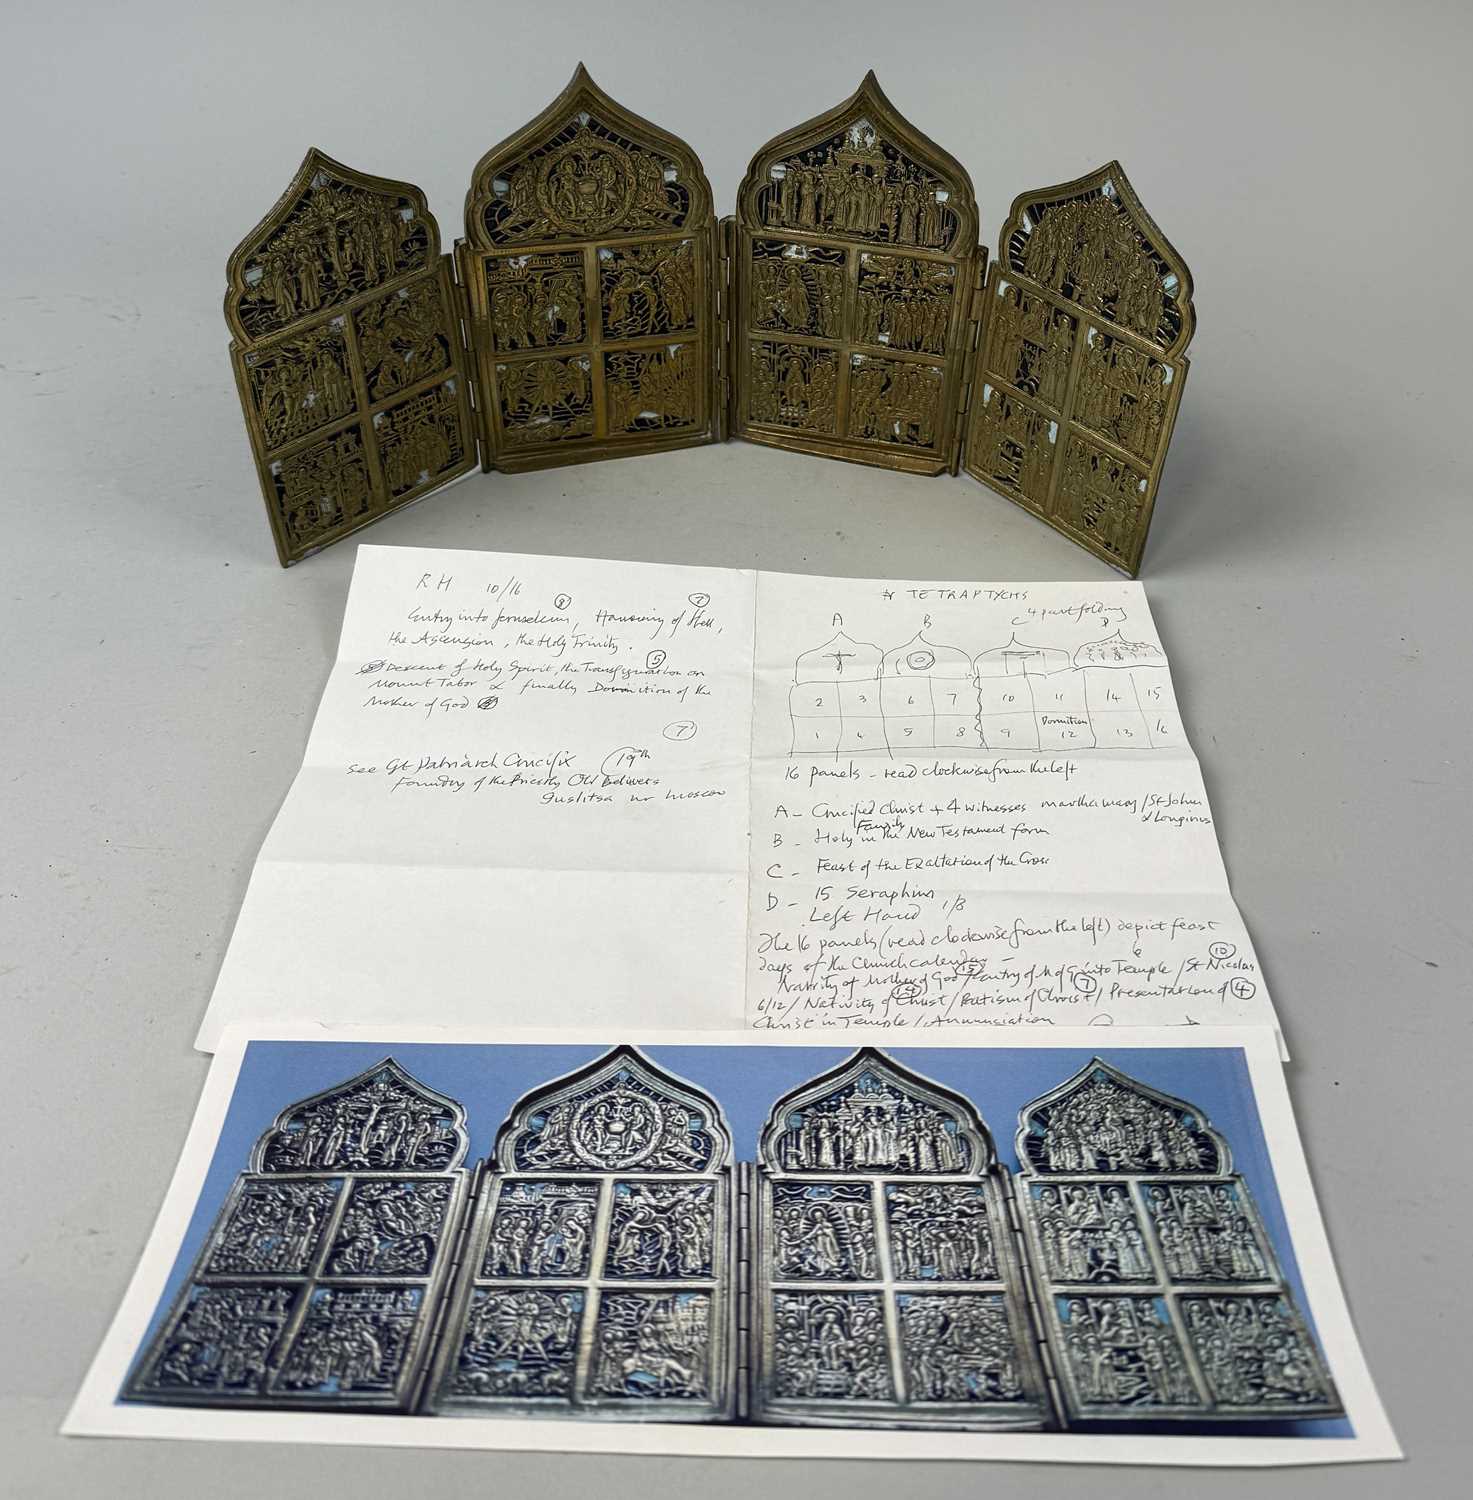 R H 10/16
Entry into Jerusalem, (8) Harrowing of Hell, (7)
the Ascension, the Holy Trinity.
Descent of Holy Spirit, the Transfiguration on (5)
Mount Tabor & finally Dormition of the
Mother of God
(7)
See Gt Patriarch Crucifix 19th
Foundry of the Priestly Old Believers
Guslitsa nr Moscow
TETRAPTYCHS
4 part folding
A B C D
2 3 6 7 10 11 14 15
Dormition
1 4 5 8 9 12 13 16
16 panels - read clockwise from the left
A - Crucified Christ + 4 witnesses Martha Mary / St John
& Longinus
Family
B - Holy in the New Testament form
C - Feast of the Exaltation of the Cross
D - 15 Seraphim
Left Hand 1/8
The 16 panels (read clockwise from the left) depict feast
days of the Church calendar -
Nativity of Mother of God / Entry of M of G into Temple / St Nicolas
6/12 / Nativity of Christ / Batism of Christ / Presentation of (4)
Christ in Temple / Annunciation